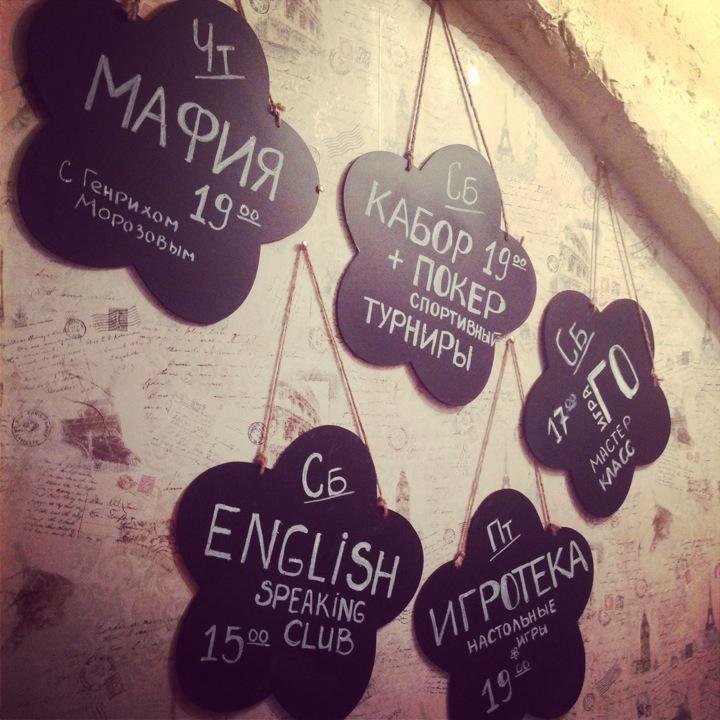 Чт
МАФИЯ
19 00
С Генрихом
Морозовым
Сб
КАБОР 19 00
+ ПОКЕР
СПОРТИВНЫЙ
ТУРНИРЫ
Сб
17 00
ИГРА ГО
МАСТЕР
КЛАСС
Сб
ENGLISH
SPEAKING
15 00 CLUB
Пт
ИГРОТЕКА
НАСТОЛЬНЫЕ
ИГРЫ
19 00